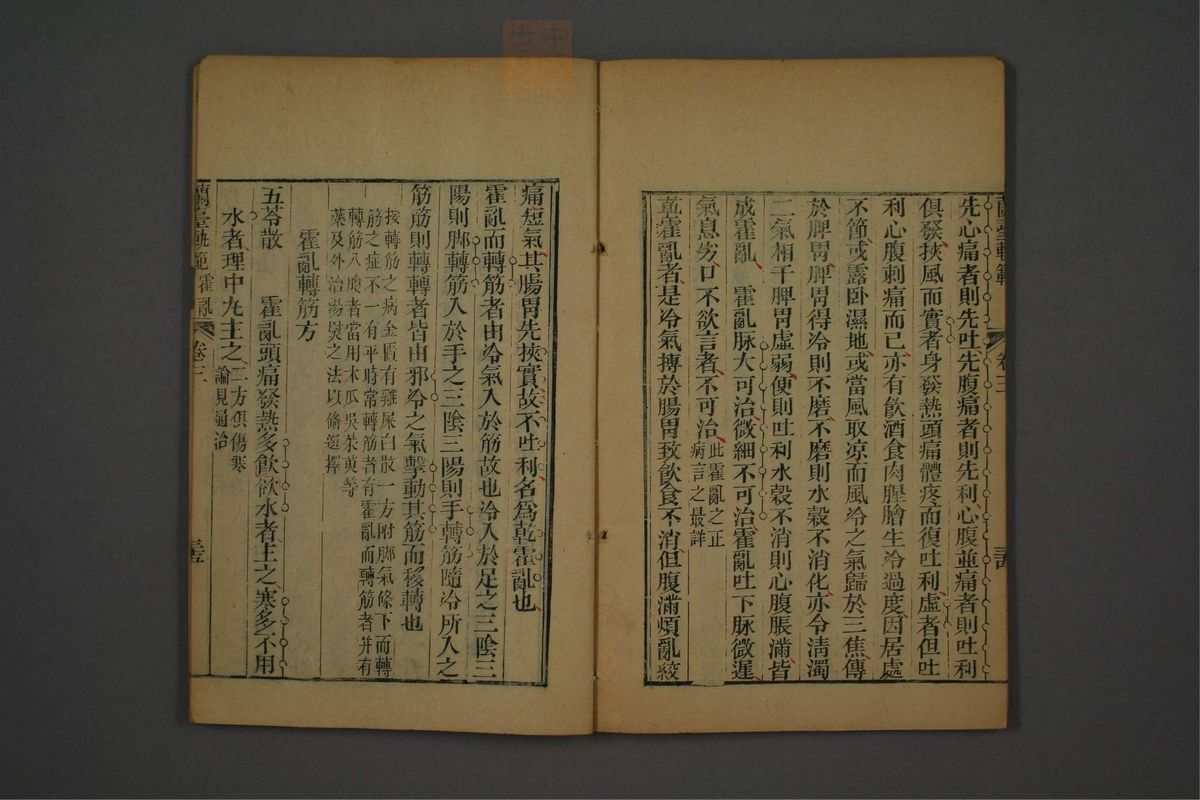 蘭臺軌範
卷三
先心痛者則先吐先腹痛者則先利心腹並痛者則吐利
俱發挾風而實者身發熱頭痛體疼而復吐利虛者但吐
利心腹刺痛而已亦有飲酒食肉腥膾生冷過度因居處
不節或露卧濕地或當風取凉而風冷之氣歸於三焦傳
於脾胃脾胃得冷則不磨不磨則水穀不消化亦令淸濁
二氣相干脾胃虛弱便則吐利水穀不消則心腹脹滿皆
成霍亂 霍亂脉大可治微細不可治霍亂吐下脉微遲
氣息劣口不欲言者不可治
此霍亂之正
病言之最詳
乾霍亂者是冷氣搏於腸胃致飲食不消但腹滿煩亂絞
痛短氣其腸胃先挾實故不吐利名爲乾霍亂也
霍亂而轉筋者由冷氣入於筋故也冷入於足之三陰三
陽則脚轉筋入於手之三陰三陽則手轉筋隨冷所入之
筋筋則轉轉者皆由邪冷之氣擊動其筋而移轉也
按轉筋之病金匱有雞屎白散一方附脚氣條下而轉
筋之症不一有平時常轉筋者有霍亂而轉筋者并有
轉筋入腹者當用木瓜吳茱萸等
藥及外治湯熨之法以條選擇
霍亂轉筋方
五苓散 霍亂頭痛發熱多飲欲水者主之寒多不用
水者理中丸主之
二方俱傷寒
論見通治
蘭臺軌範 霍亂
卷三